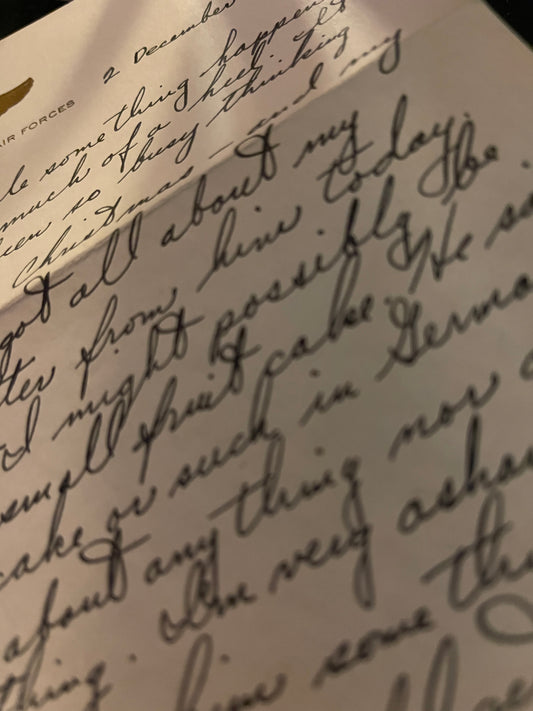 AIR FORCES
2 December
some thing happen
much of a
so busy thinking
Christmas - and my
got all about my
ter from him today.
I might possibly be
small fruit cake. He
cake or such in Germa
about any thing nor
thing. I'm very asha
him some thi